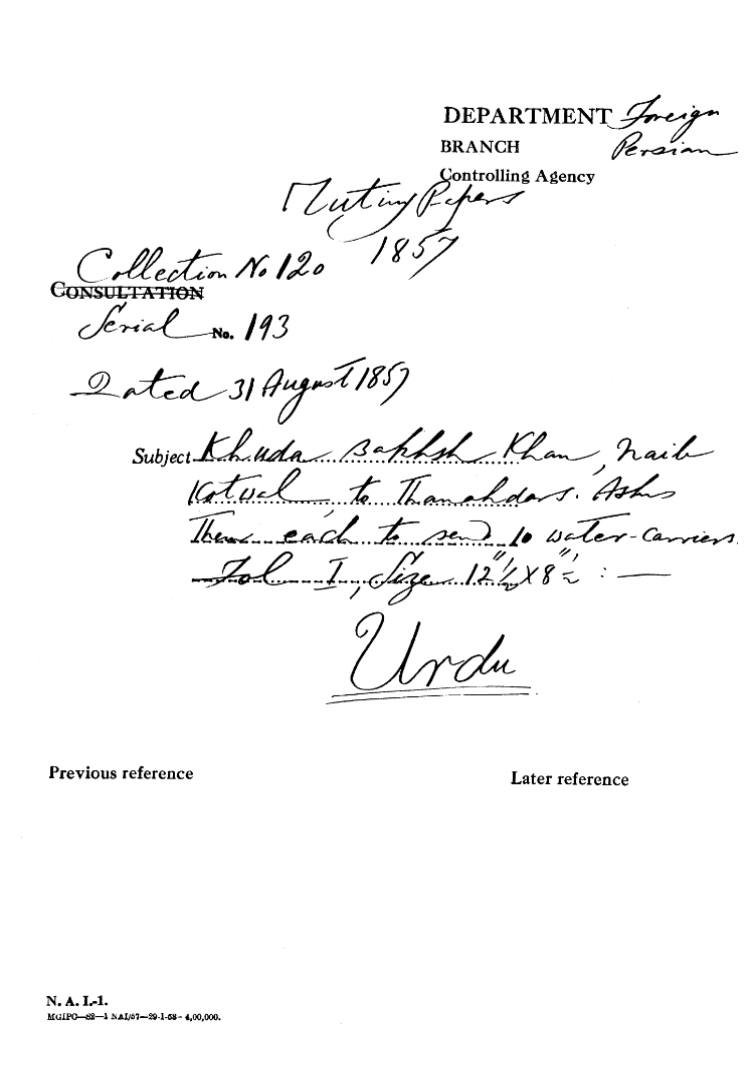 DEPARTMENT Foreign
BRANCH Persian
Controlling Agency
Mutiny Papers
1857
Collection No 120
CONSULTATION
Serial No. 193
Dated 31 August 1857
Subject Khuda Bakhsh Khan, Naib
Kotwal, to Thanahdars. Asks
Them each to send 10 water-carriers.
Fol I, Size 12"½ X 8"½ : —
Urdu
Previous reference
Later reference
N. A. I.-1.
MGIPC—S2—1 NAI/57—29-1-58— 4,00,000.